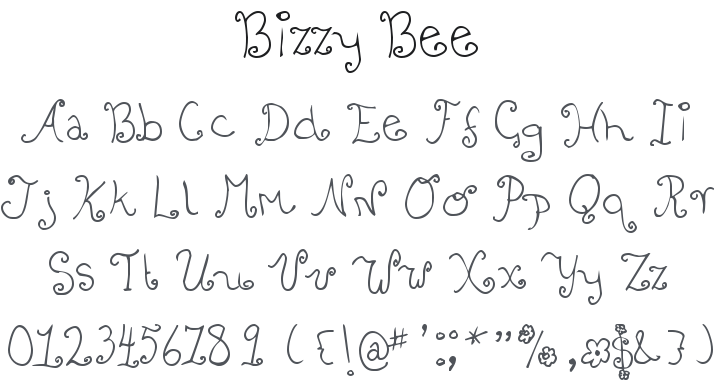 Bizzy Bee
Aa Bb Cc Dd Ee Ff Gg Hh Ii
Jj Kk Ll Mm Nn Oo Pp Qq Rr
Ss Tt Uu Vv Ww Xx Yy Zz
0123456789 ({!@#':;*"%,*$&})